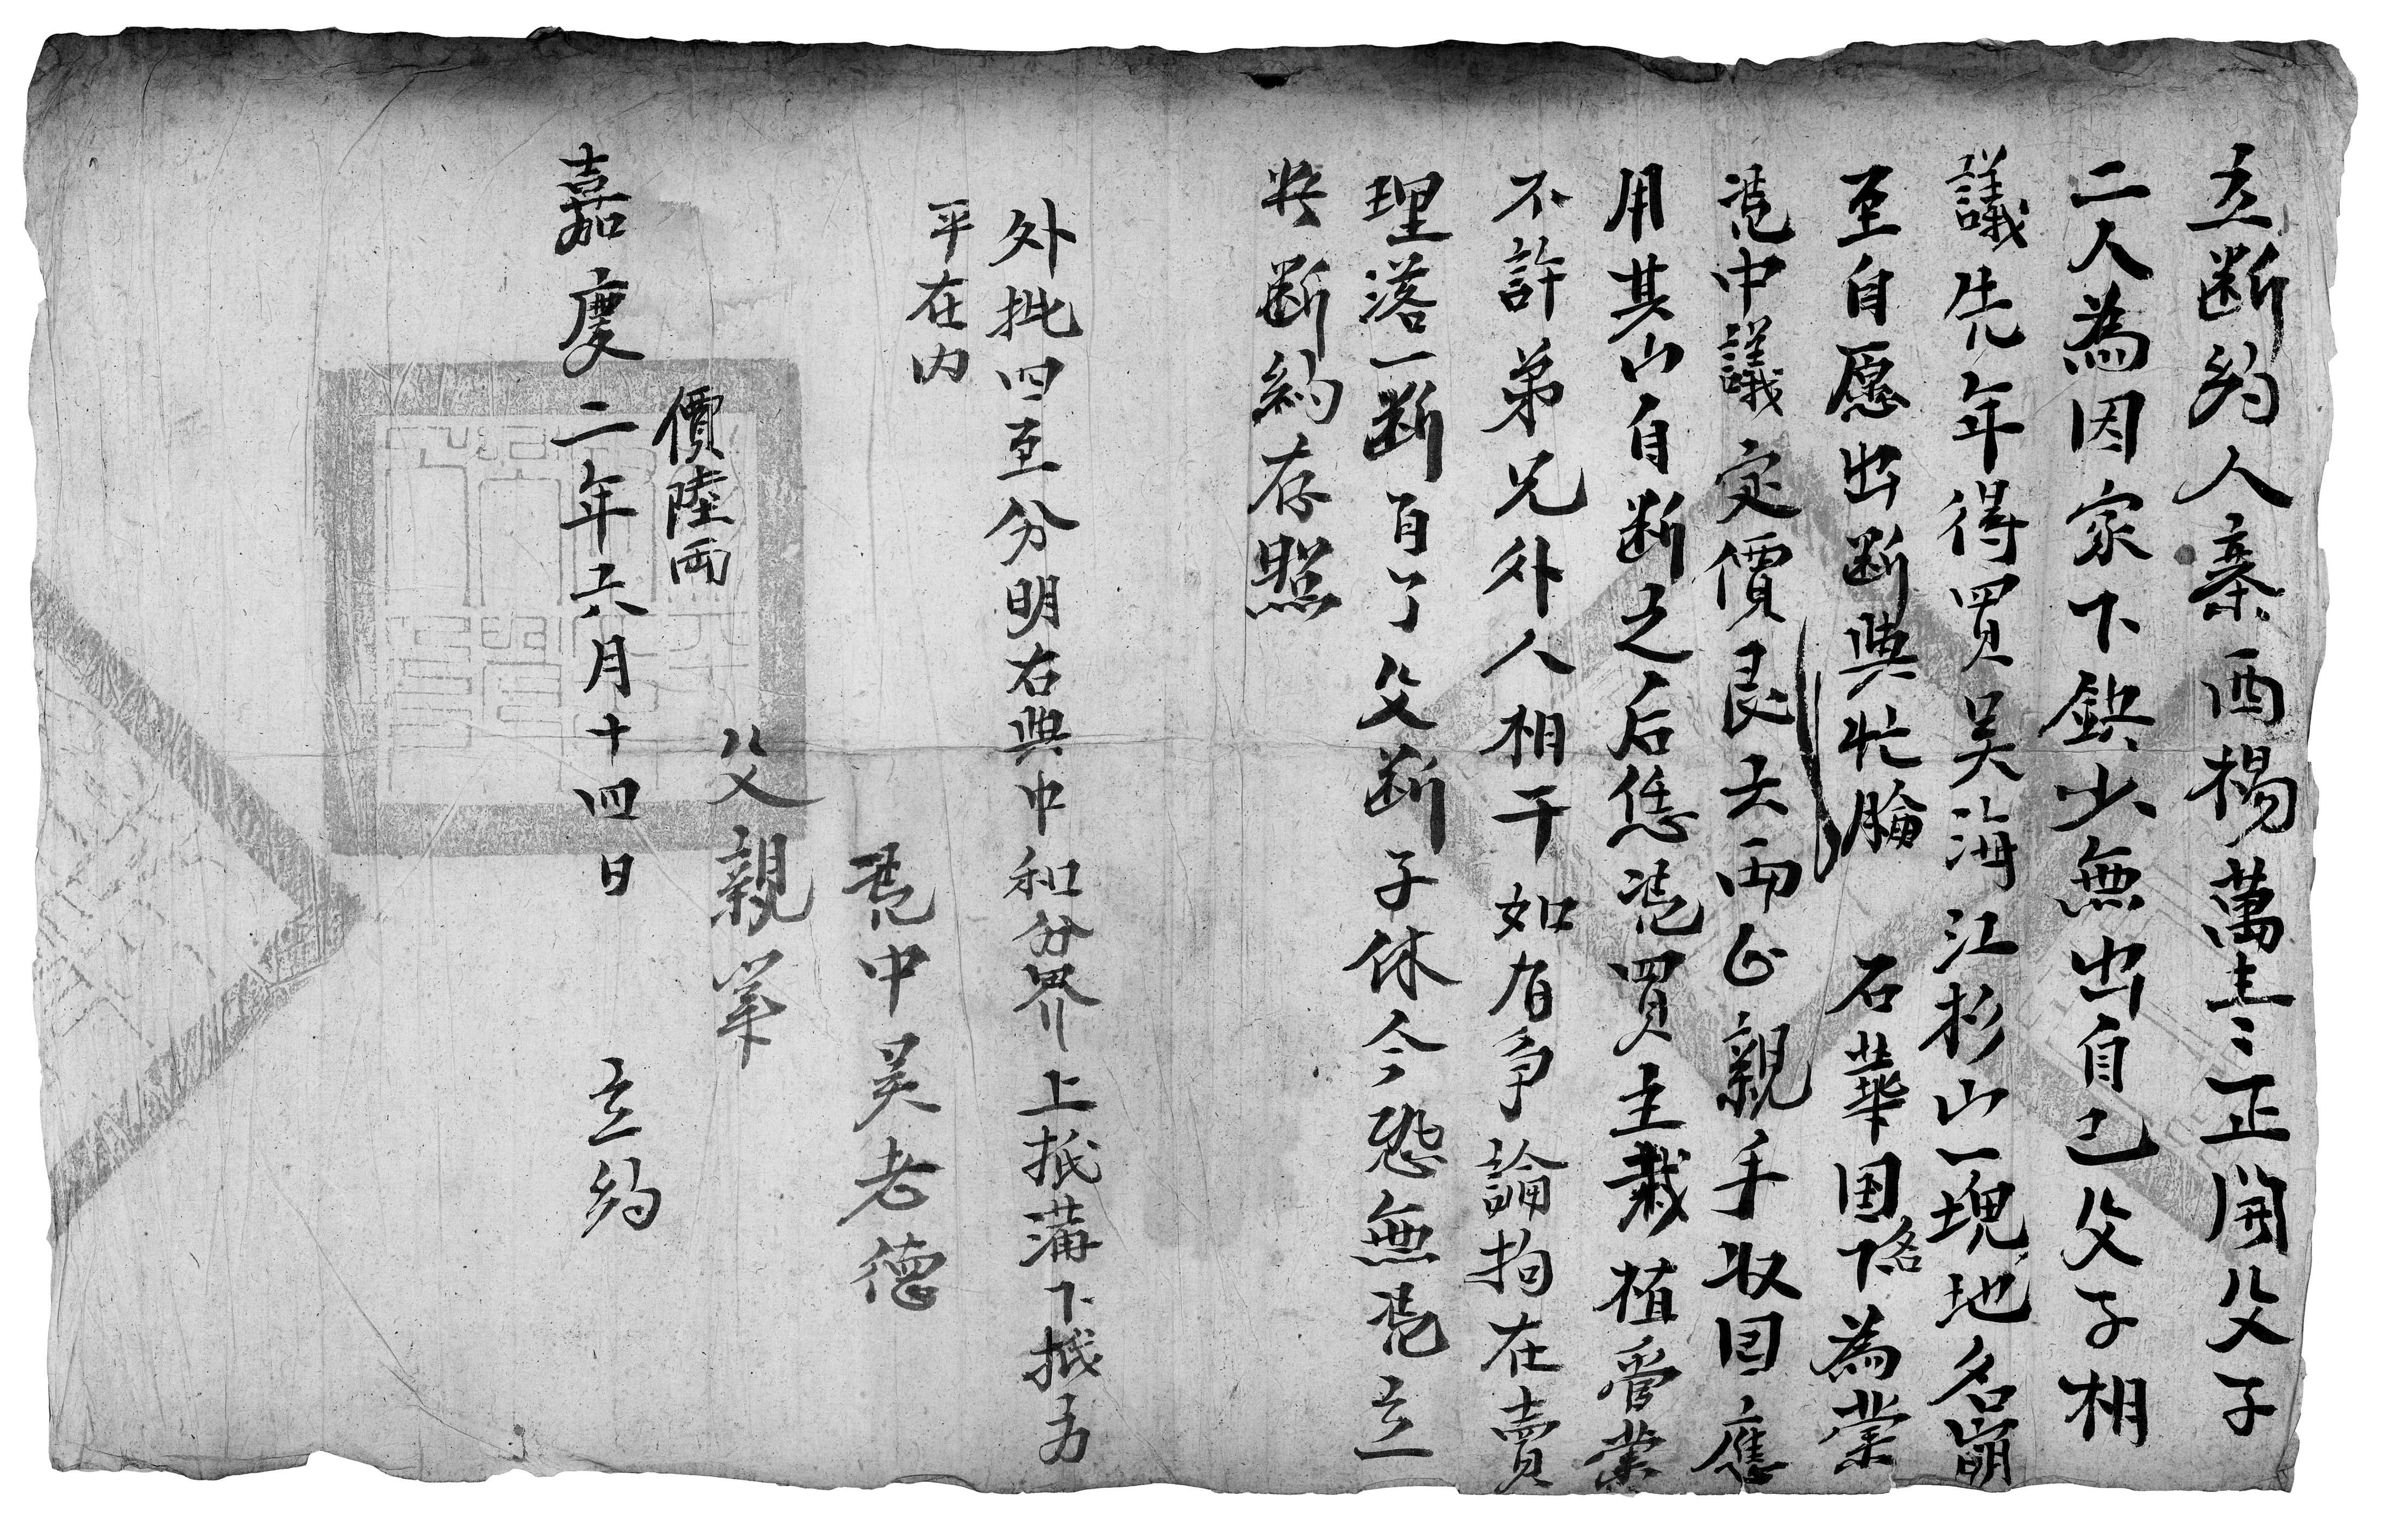 立断約人寨西楊萬主三正開父子
二人為因家下缺少無出自己父子相
議先年得買吴海江杉山一塊地名崩
至自愿出断與忙臉 石華囯格下為業
凴中議定價艮六両正親手收回應
用其山自断之后恁凴買主栽植管業
不許弟兄外人相干如有爭論拘在賣
理落一断百了父断子休今恐無凴立
此断約存照
外批四至分明右與中和分界上抵溝下抵万
平在内
凴中吴老德
父親筆
價陸両
嘉慶二年六月十四日 立約